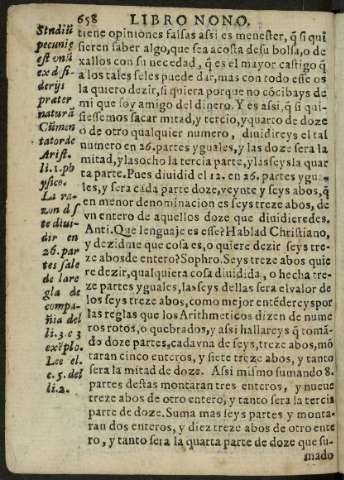 658 LIBRO NONO.
tiene opiniones falsas assi es menester, q̃ si qui
sieren saber algo, que sea acosta desu bolsa, o de
xallos con su necedad, q̃ es el mayor castigo q̃
a los tales seles puede dar, mas con todo esse os
la quiero dezir, si quiera porque no cõcibays de
mi que soy amigo del dinero. Y es assi, q̃ si qui-
siessemos sacar mitad, y tercio, y quarto de doze
o de otro qualquier numero, diuidireys el tal
numero en 26. partes yguales, y las doze sera la
mitad, y las ocho la tercia parte, y las seys la quar
ta parte. Pues diuidid el 12. en 26. partes ygua-
les, y sera cada parte doze, veynte y seys abos, q̃
en menor denominacion es seys treze abos, de
vn entero de aquellos doze que diuidieredes.
Anti. Que lenguaje es esse? Hablad Christiano,
y dezidme que cosa es, o quiere dezir seys tre-
ze abos de entero? Sophro. Seys treze abos quie
re dezir, qualquiera cosa diuidida, o hecha tre-
ze partes yguales, las seys dellas sera el valor de
los seys treze abos, como mejor entẽdereys por
las reglas que los Arithmeticos dizen de nume
ros rotos, o quebrados, y assi hallareys q̃ tomã-
do doze partes, cada vna de seys, treze abos, mõ
taran cinco enteros, y siete treze abos, y tanto
sera la mitad de doze. Assi mismo sumando 8.
partes destas montaran tres enteros, y nueue
treze abos de otro entero, y tanto sera la tercia
parte de doze. Suma mas seys partes y monta-
ran dos enteros, y diez treze abos de otro ente
ro, y tanto sera la quarta parte de doze que su-
mado
Studiũ
pecunię
est vnũ
ex d̃ si-
derijs
præter
naturã
Cũmen
tator de
Arist.
li. 1. ph
ysico.
La ra-
zon d̃ s
te diui-
dir en
26. par
tes sale
de la re
gla de
compa-
ñia del
li. 3. c 3
exẽplo.
Lee el
c. 5. del
li. 2.